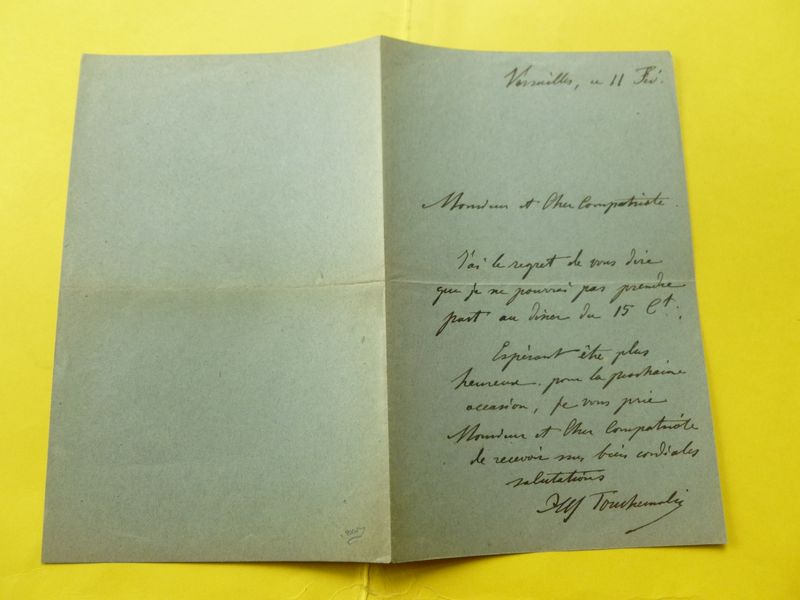 Versailles, ce 11 Fév.
Monsieur et Cher Compatriote.
J'ai le regret de vous dire
que je ne pourrai pas prendre
part au diner du 15 Ct.
Espérant être plus
heureux pour la prochaine
occasion, je vous prie
Monsieur et Cher Compatriote
de recevoir mes bien cordiales
salutations
Touchemolin